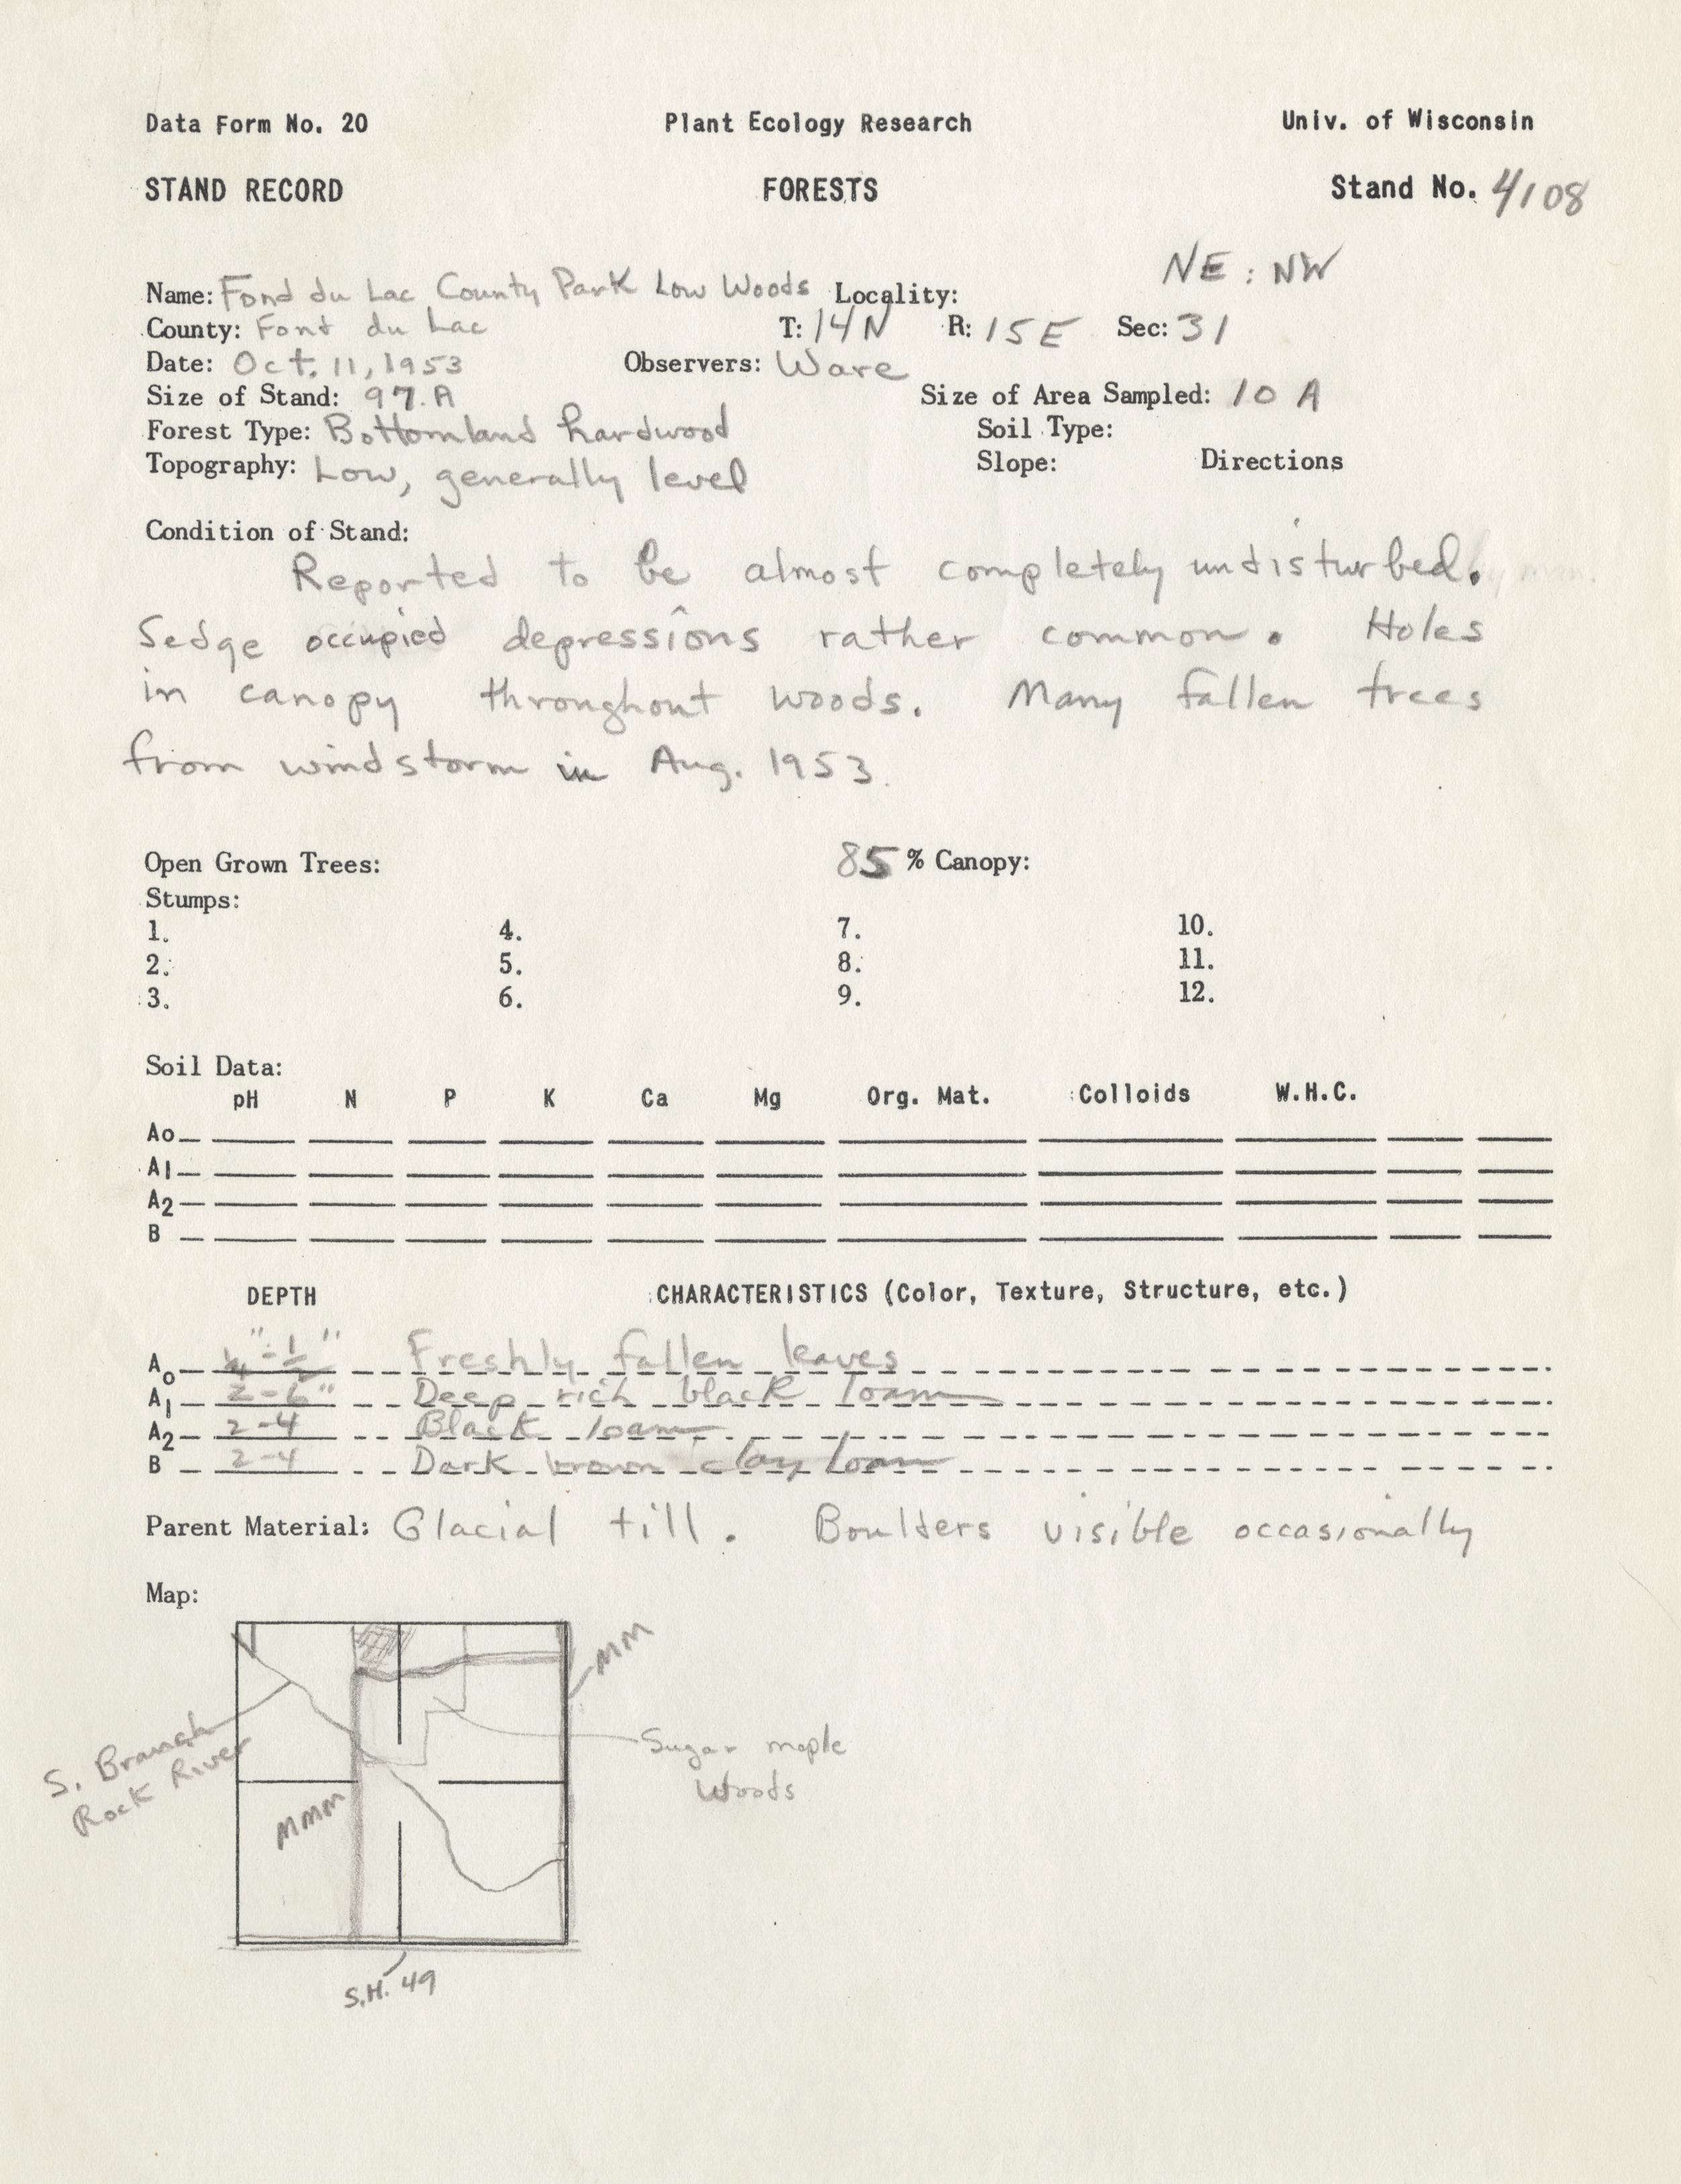 Data Form No. 20 Plant Ecology Research Univ. of Wisconsin
STAND RECORD FORESTS Stand No. 4108
NE : NW
Name: Fond du Lac County Park Low Woods Locality:
County: Font du Lac T: 14N R: 15E Sec: 31
Date: Oct. 11, 1953 Observers: Ware
Size of Stand: 97.A Size of Area Sampled: 10 A
Forest Type: Bottomland hardwood Soil Type:
Topography: Low, generally level Slope: Directions
Condition of Stand:
Reported to be almost completely undisturbed.
Sedge occupied depressions rather common. Holes
in canopy throughout woods. Many fallen trees
from windstorm in Aug. 1953.
Open Grown Trees: 85 % Canopy:
Stumps:
1. 4. 7. 10.
2. 5. 8. 11.
3. 6. 9. 12.
Soil Data:
pH N P K Ca Mg Org. Mat. Colloids W.H.C.
Ao
A1
A2
B
DEPTH CHARACTERISTICS (Color, Texture, Structure, etc.)
Ao 1/4" - 1/2" Freshly fallen leaves
A1 2-6" Deep rich black loam
A2 2-4 Black loam
B 2-4 Dark brown clay loam
Parent Material: Glacial till. Boulders visible occasionally
Map:
MM
S. Branch
Rock River
Sugar maple
Woods
MMM
S.H. 49